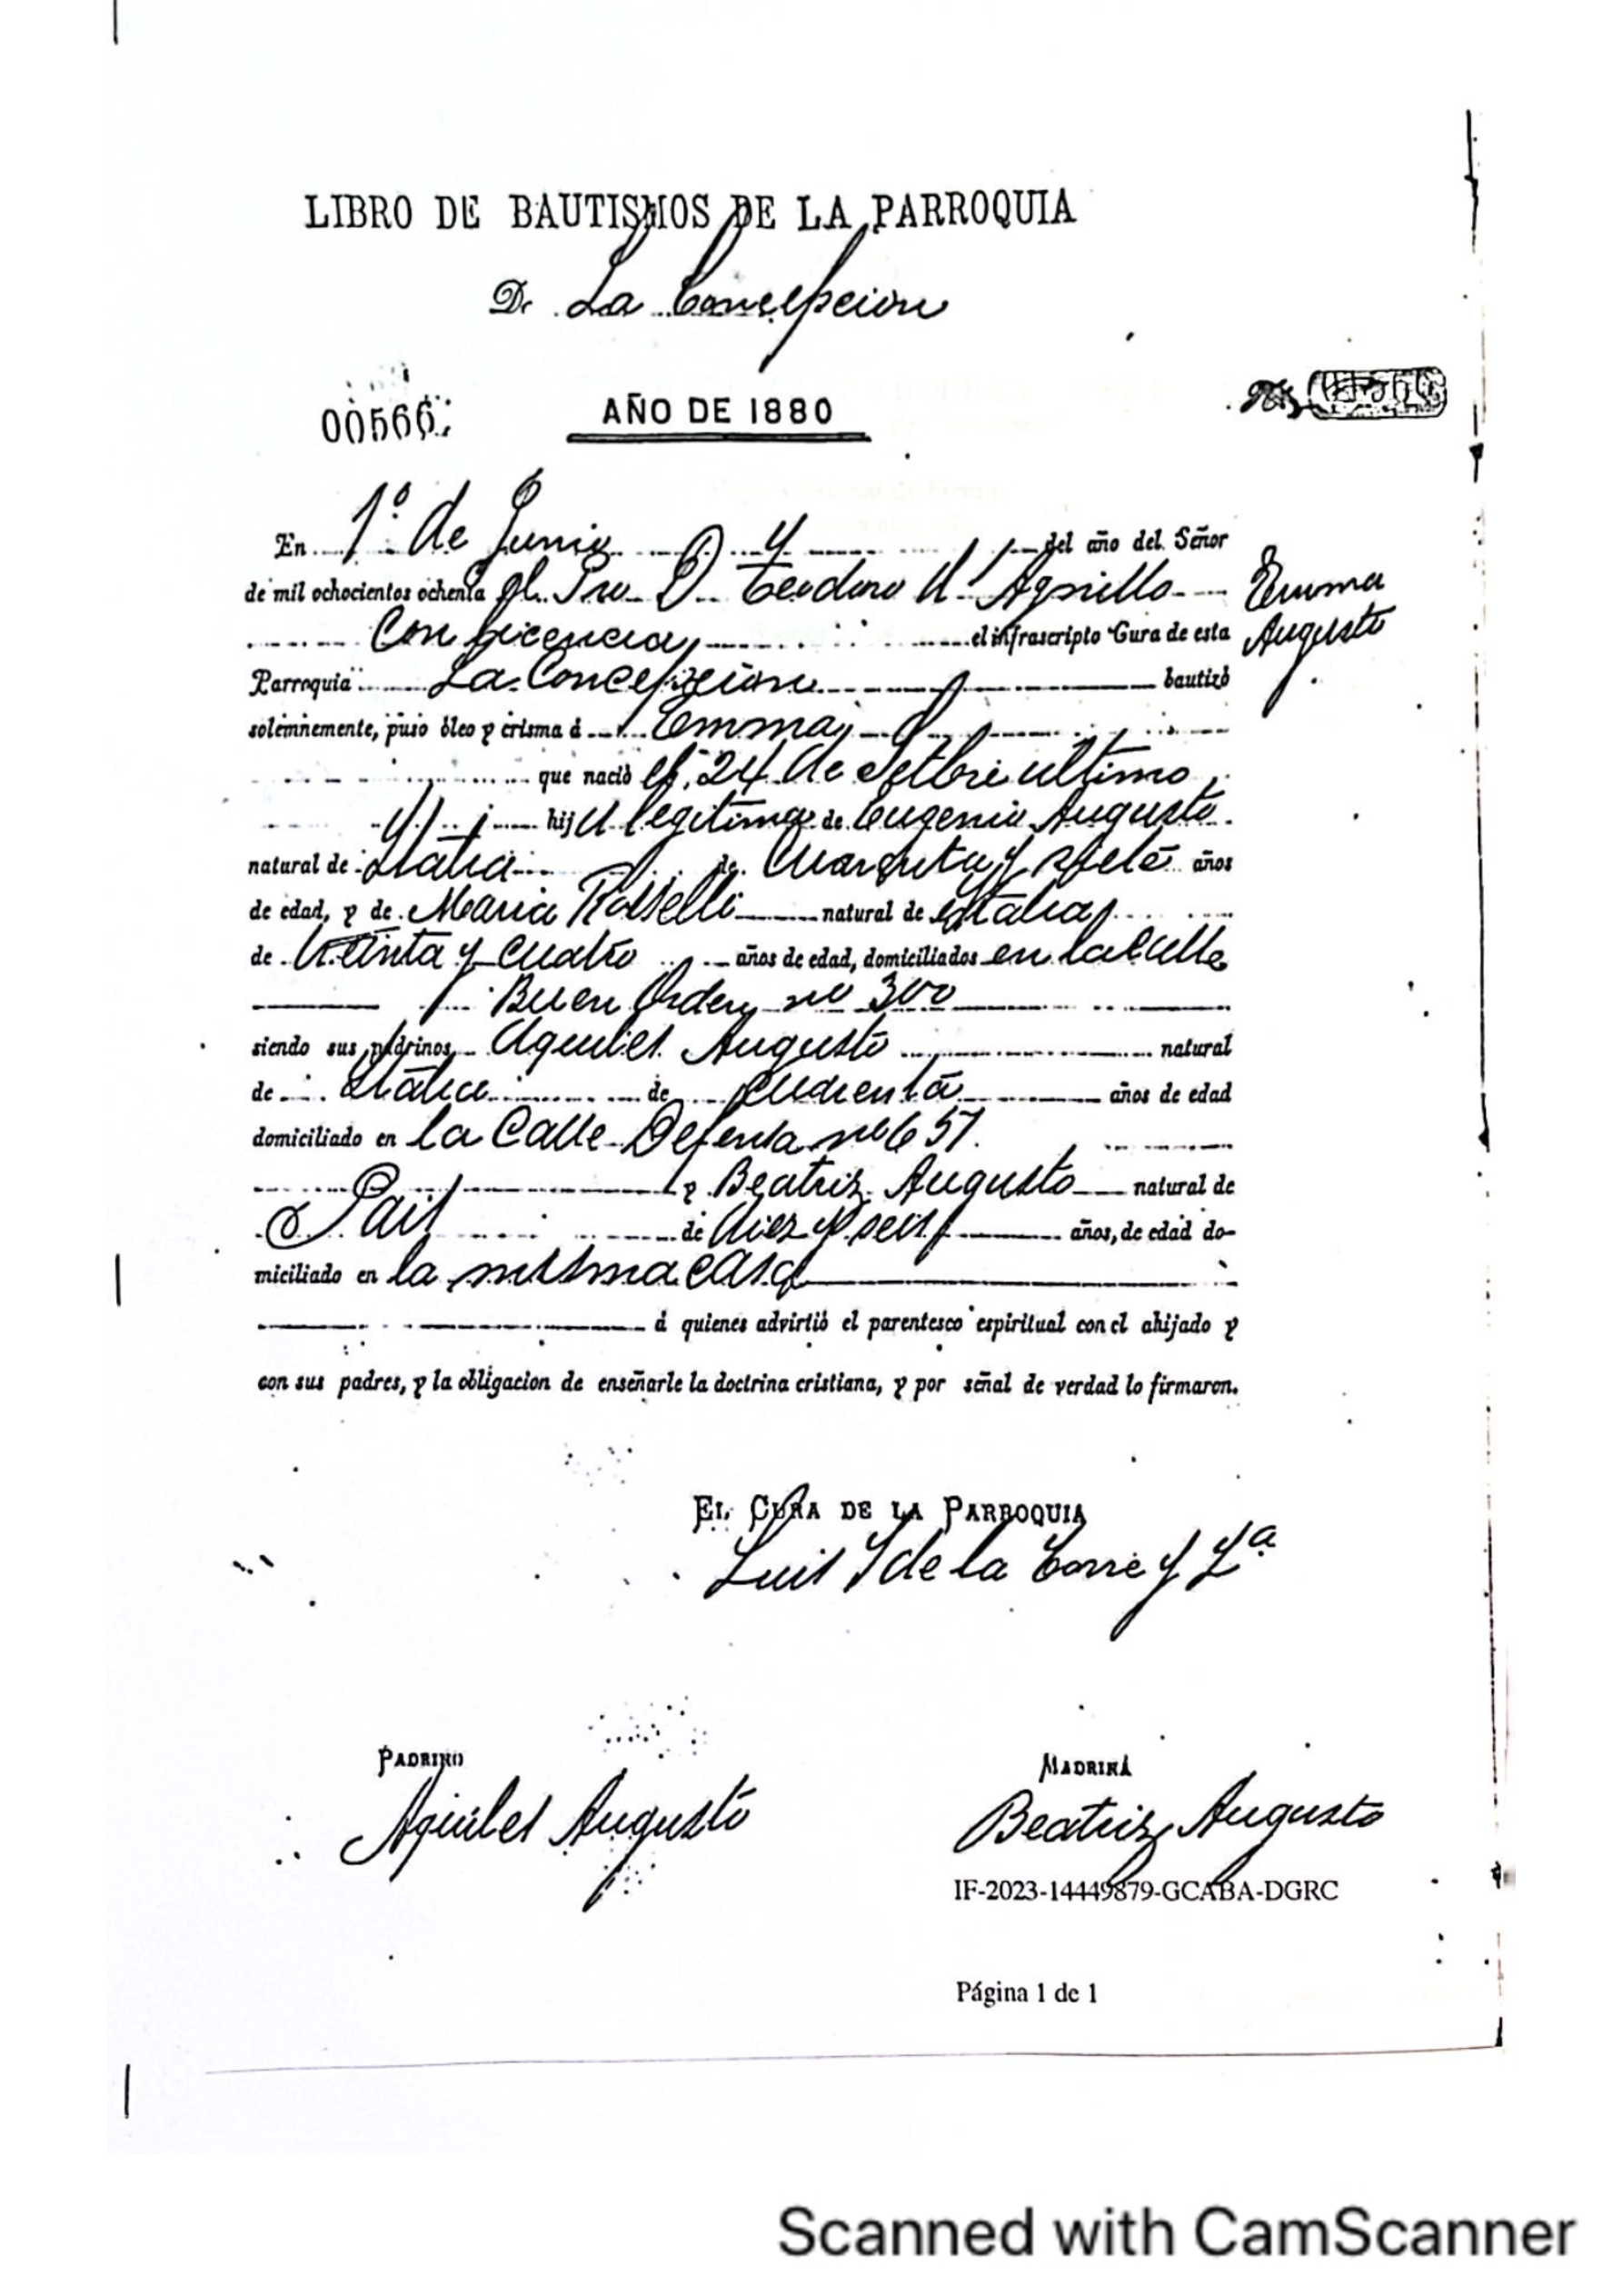 LIBRO DE BAUTISMOS DE LA PARROQUIA
De La Concepcion
00566
AÑO DE 1880
En 1º de Junio del año del Señor
de mil ochocientos ochenta el Pro. D. Teodoro Agnello
Con licencia el infrascripto Cura de esta
Emma
Augusto
Parroquia La Concepcion bautizó
solemnemente, puso óleo y crisma á Emma
que nació el 24 de Setbre ultimo
hija legitima de Eugenio Augusto
natural de Italia de Cuarenta y siete años
de edad, y de Maria Rosselli natural de Italia
de treinta y cuatro años de edad, domiciliados en la Calle
Buen Orden no 300
siendo sus padrinos Aquiles Augusto natural
de Italia de cuarenta años de edad
domiciliado en la Calle Defensa no 657
y Beatriz Augusto natural de
Pais de diez y seis años, de edad do-
miciliado en la misma casa
á quienes advirtió el parentesco espiritual con el ahijado y
con sus padres, y la obligacion de enseñarle la doctrina cristiana, y por señal de verdad lo firmaron.
EL CURA DE LA PARROQUIA
Luis de la Torre y Zª
PADRINO
Aquiles Augusto
MADRINA
Beatriz Augusto
IF-2023-14449879-GCABA-DGRC
Página 1 de 1
Scanned with CamScanner